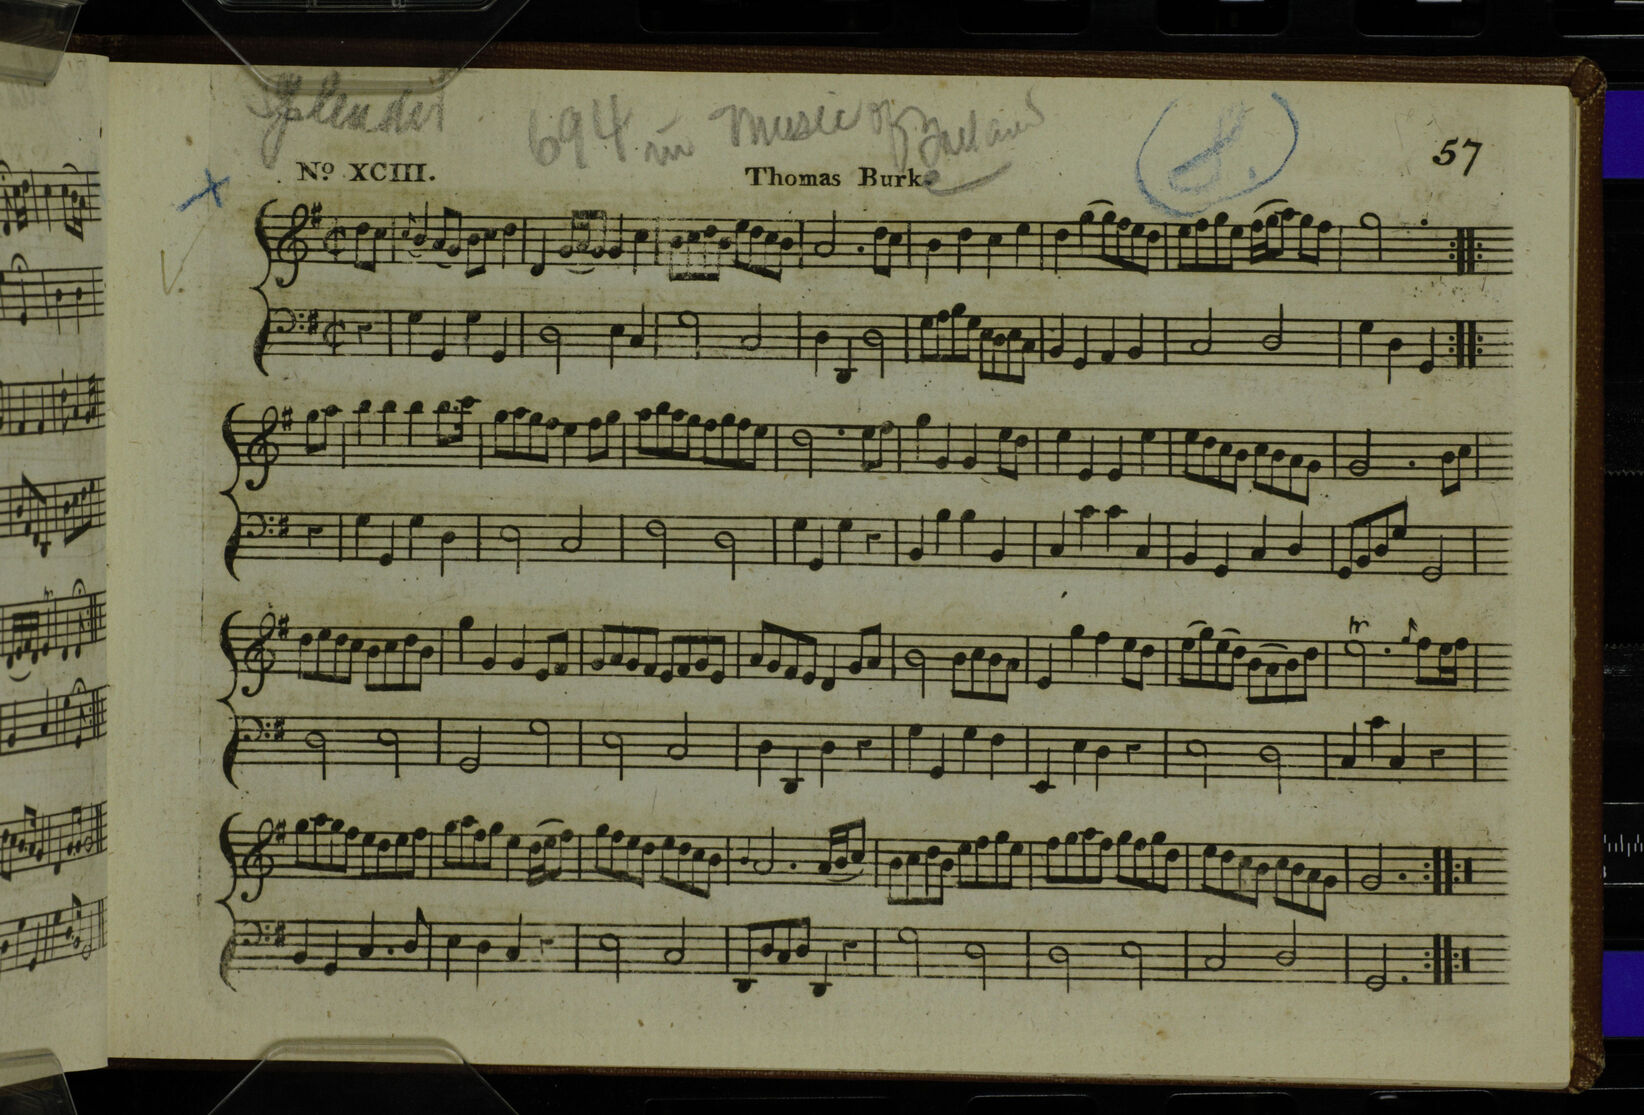 Splendid
694 in Music of Ireland
57
No. XCIII.
Thomas Burke
tr